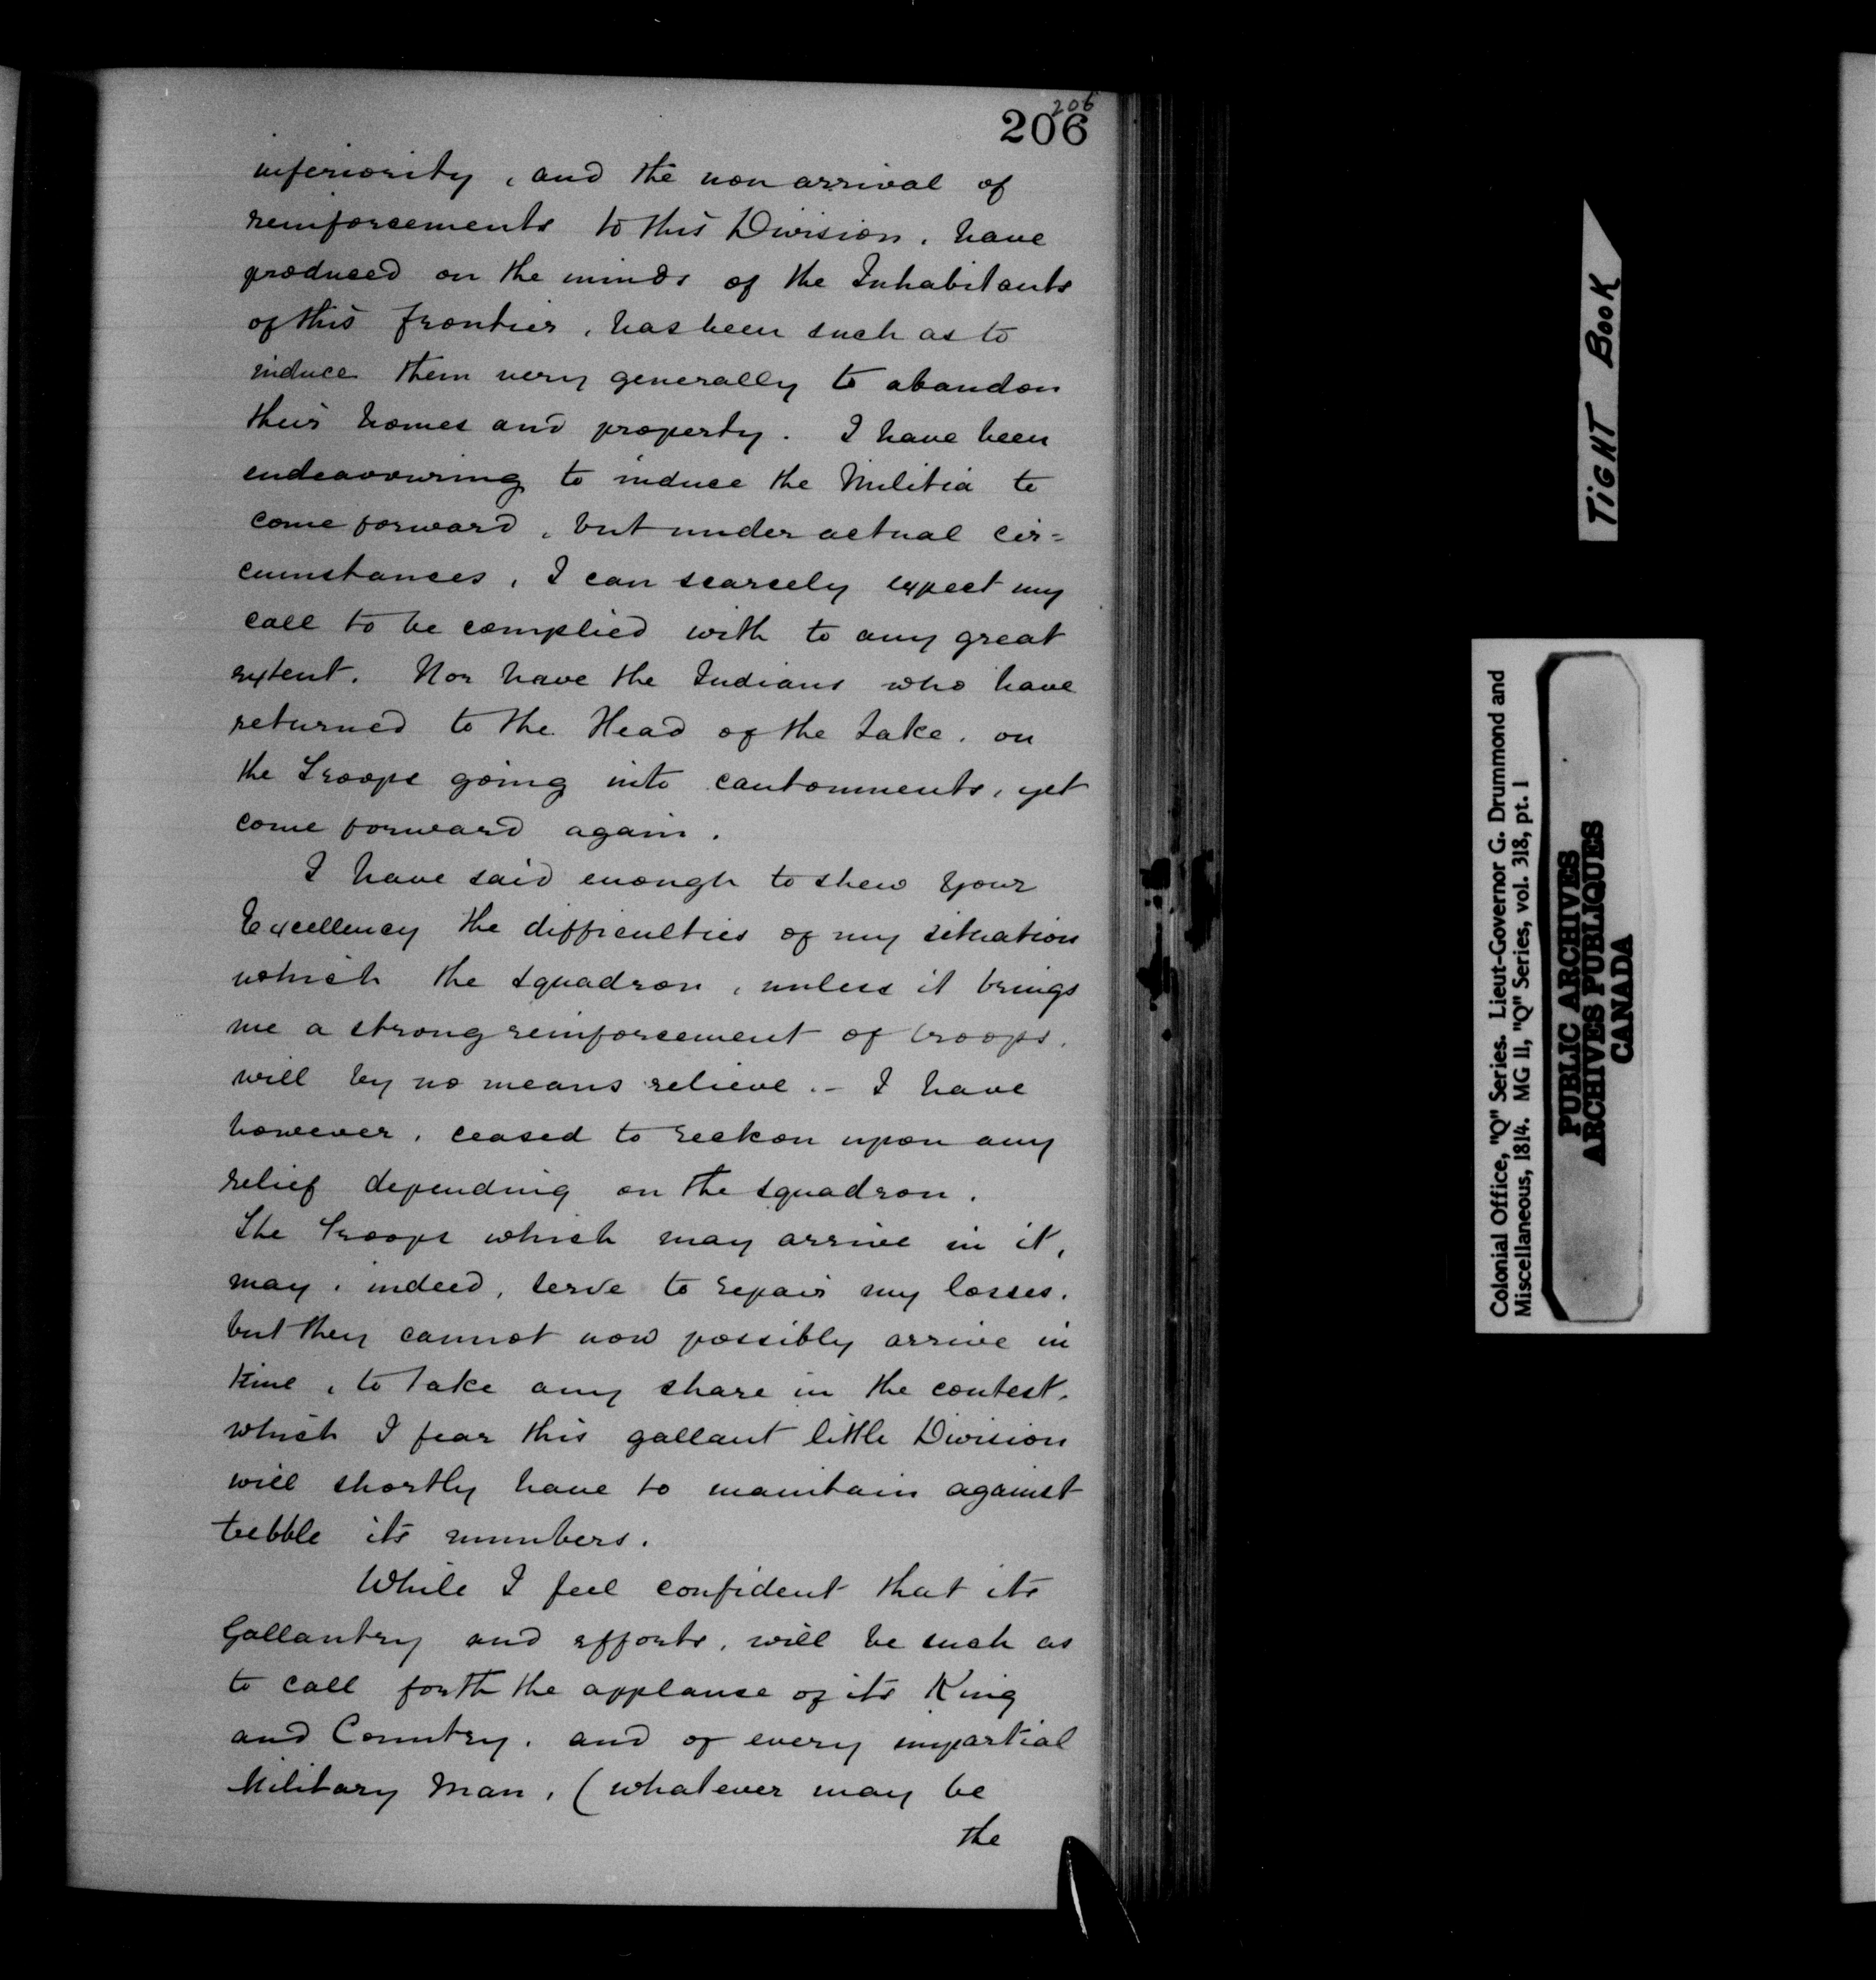 206
206
inferiority, and the non arrival of
reinforcements to this Division, have
produced on the minds of the Inhabitants
of this frontier, has been such as to
induce them very generally to abandon
their homes and property. I have been
endeavouring to induce the Militia to
come forward, but under actual cir=
cumstances, I can scarcely expect my
call to be complied with to any great
extent. Nor have the Indians who have
returned to the Head of the Lake, on
the Troops going into cantonments, yet
come forward again.
I have said enough to shew Your
Excellency the difficulties of my situation
which the squadron, unless it brings
me a strong reinforcement of troops,
will by no means relieve. - I have
however, ceased to reckon upon any
relief depending on the squadron.
The Troops which may arrive in it,
may, indeed, serve to repair my losses,
but they cannot now possibly arrive in
time, to take any share in the contest,
which I fear this gallant little Division
will shortly have to maintain against
trebble its numbers.
While I feel confident that its
Gallantry and efforts, will be such as
to call forth the applause of its King
and Country, and of every impartial
Military Man, (whatever may be
the
TIGHT BOOK
Colonial Office, "Q" Series. Lieut-Governor G. Drummond and
Miscellaneous, 1814. MG 11, "Q" Series, vol. 318, pt. 1
PUBLIC ARCHIVES
ARCHIVES PUBLIQUES
CANADA